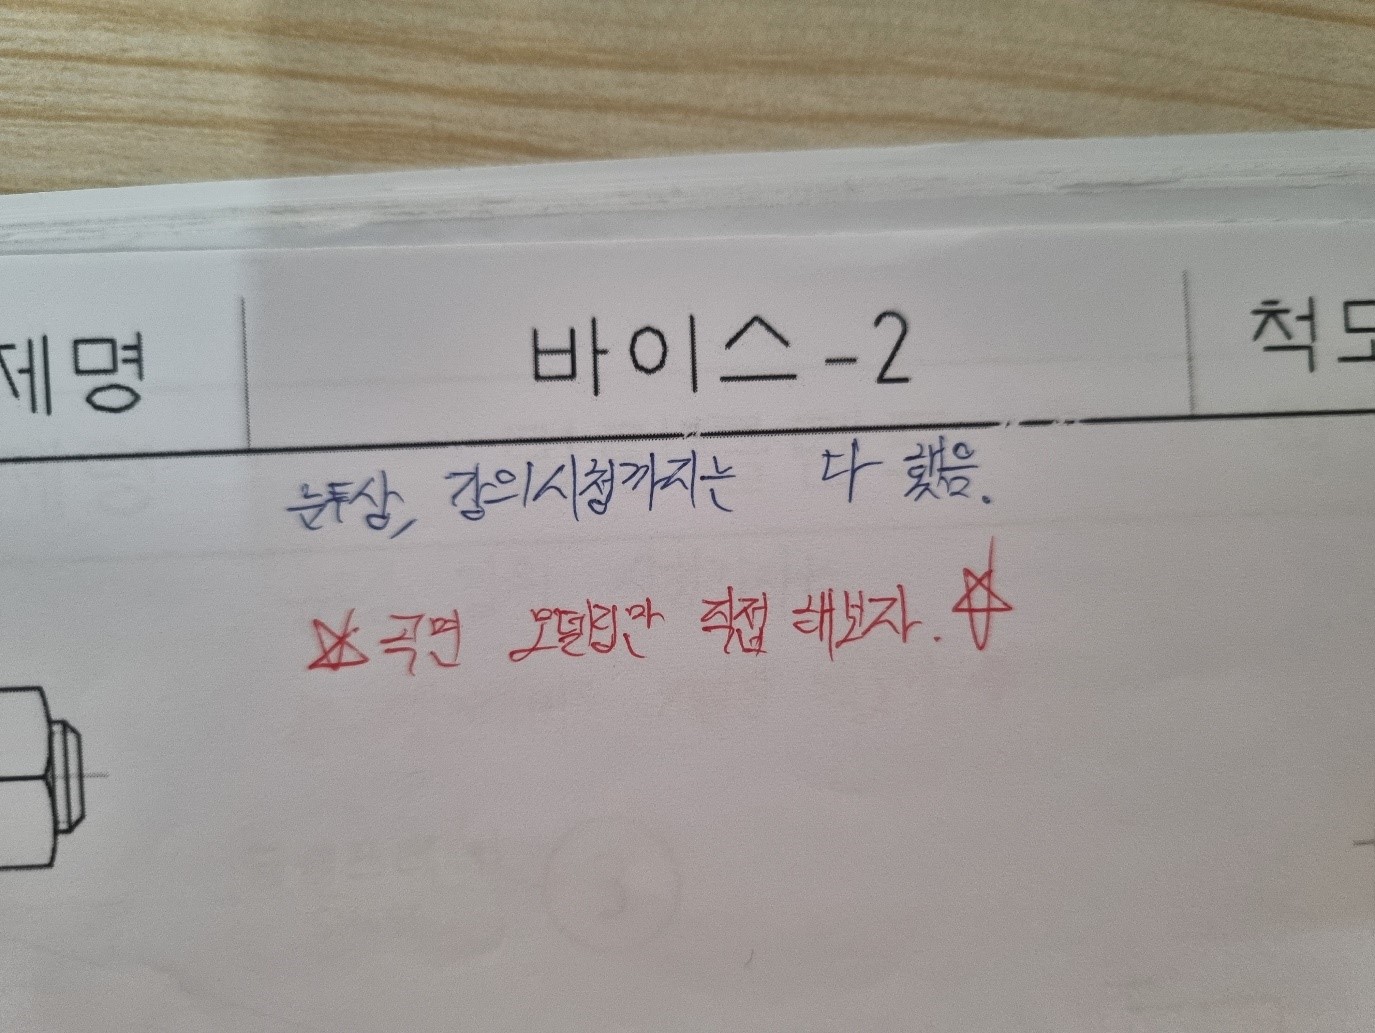 제명 바이스-2 척도
눈투상, 강의시청까지는 다 했음.
☆곡면 모델링만 직접 해보자.☆